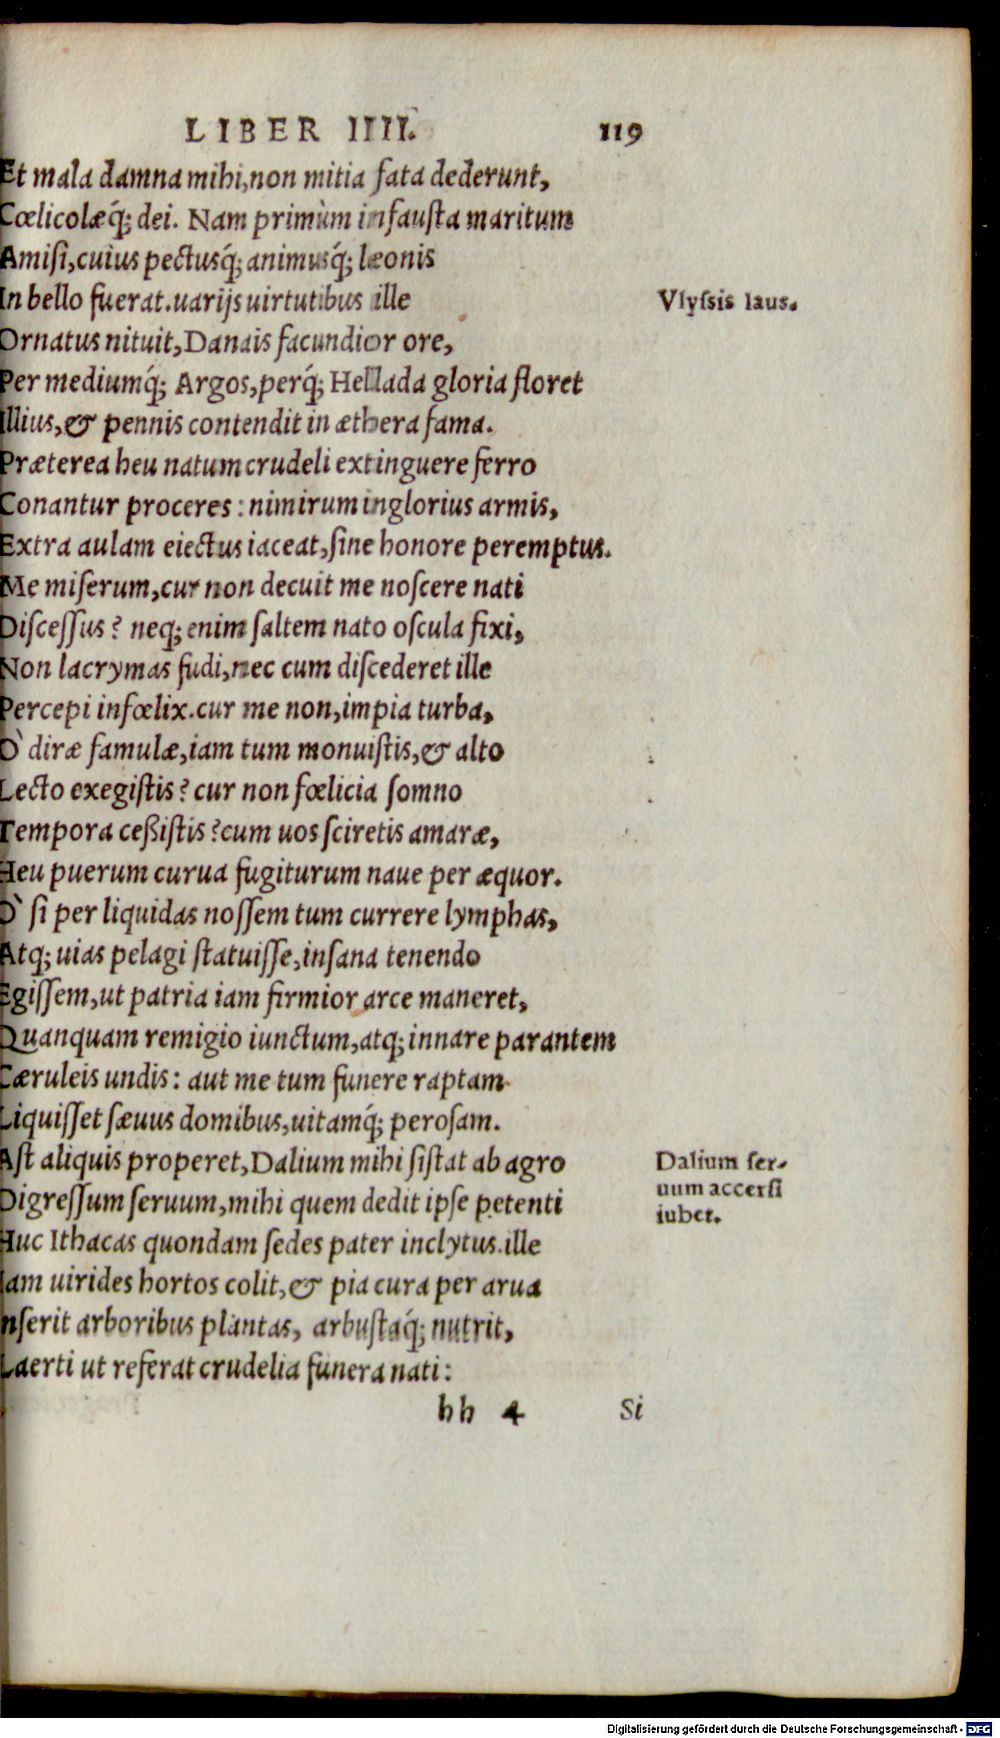 LIBER IIII. 119
Et mala damna mihi,non mitia fata dederunt,
Cœlicolæq́; dei. Nam primùm infausta maritum
Amisi,cuius pectusq́; animusq́; leonis
In bello fuerat.uarijs uirtutibus ille
Vlyssis laus.
Ornatus nituit,Danais facundior ore,
Per mediumq́; Argos,perq́; Hellada gloria floret
Illius,& pennis contendit in æthera fama.
Præterea heu natum crudeli extinguere ferro
Conantur proceres : nimirum inglorius armis,
Extra aulam eiectus iaceat,sine honore peremptus.
Me miserum,cur non decuit me noscere nati
Discessus? neq; enim saltem nato oscula fixi,
Non lacrymas fudi,nec cum discederet ille
Percepi infœlix.cur me non,impia turba,
O` diræ famulæ,iam tum monuistis,& alto
Lecto exegistis? cur non fœlicia somno
Tempora ceßistis?cum uos sciretis amaræ,
Heu puerum curua fugiturum naue per æquor.
O` si per liquidas nossem tum currere lymphas,
Atq; uias pelagi statuisse,insana tenendo
Egissem,ut patria iam firmior arce maneret,
Quanquam remigio iunctum,atq; innare parantem
Cæruleis undis: aut me tum funere raptam
Liquisset sæuus domibus,uitamq́; perosam.
Ast aliquis properet,Dalium mihi sistat ab agro
Dalium ser-
uum accersi
iubet.
Digressum seruum,mihi quem dedit ipse petenti
Huc Ithacas quondam sedes pater inclytus.ille
Iam uirides hortos colit,& pia cura per arua
Inserit arboribus plantas, arbustaq́; nutrit,
Laerti ut referat crudelia funera nati:
hh 4 Si
Digitalisierung gefördert durch die Deutsche Forschungsgemeinschaft - DFG